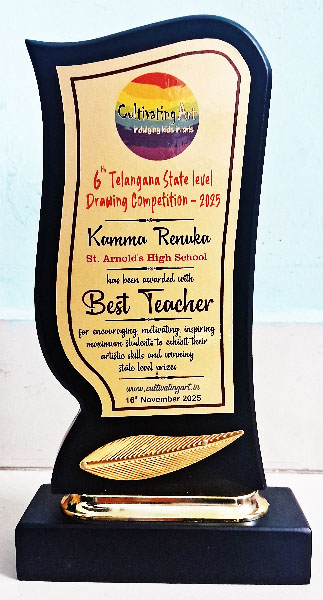 Cultivating Art
indulging kids in arts
6th Telangana State level
Drawing Competition - 2025
Kamma Renuka
St. Arnold's High School
has been awarded with
Best Teacher
for encouraging, motivating, inspiring
maximum students to exhibit their
artistic skills and winning
state level prizes
www.cultivatingart.in
16th November 2025